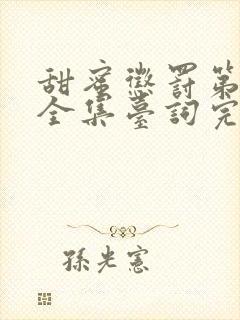 甜蜜懲罰第
全集臺詞完
孫光憲